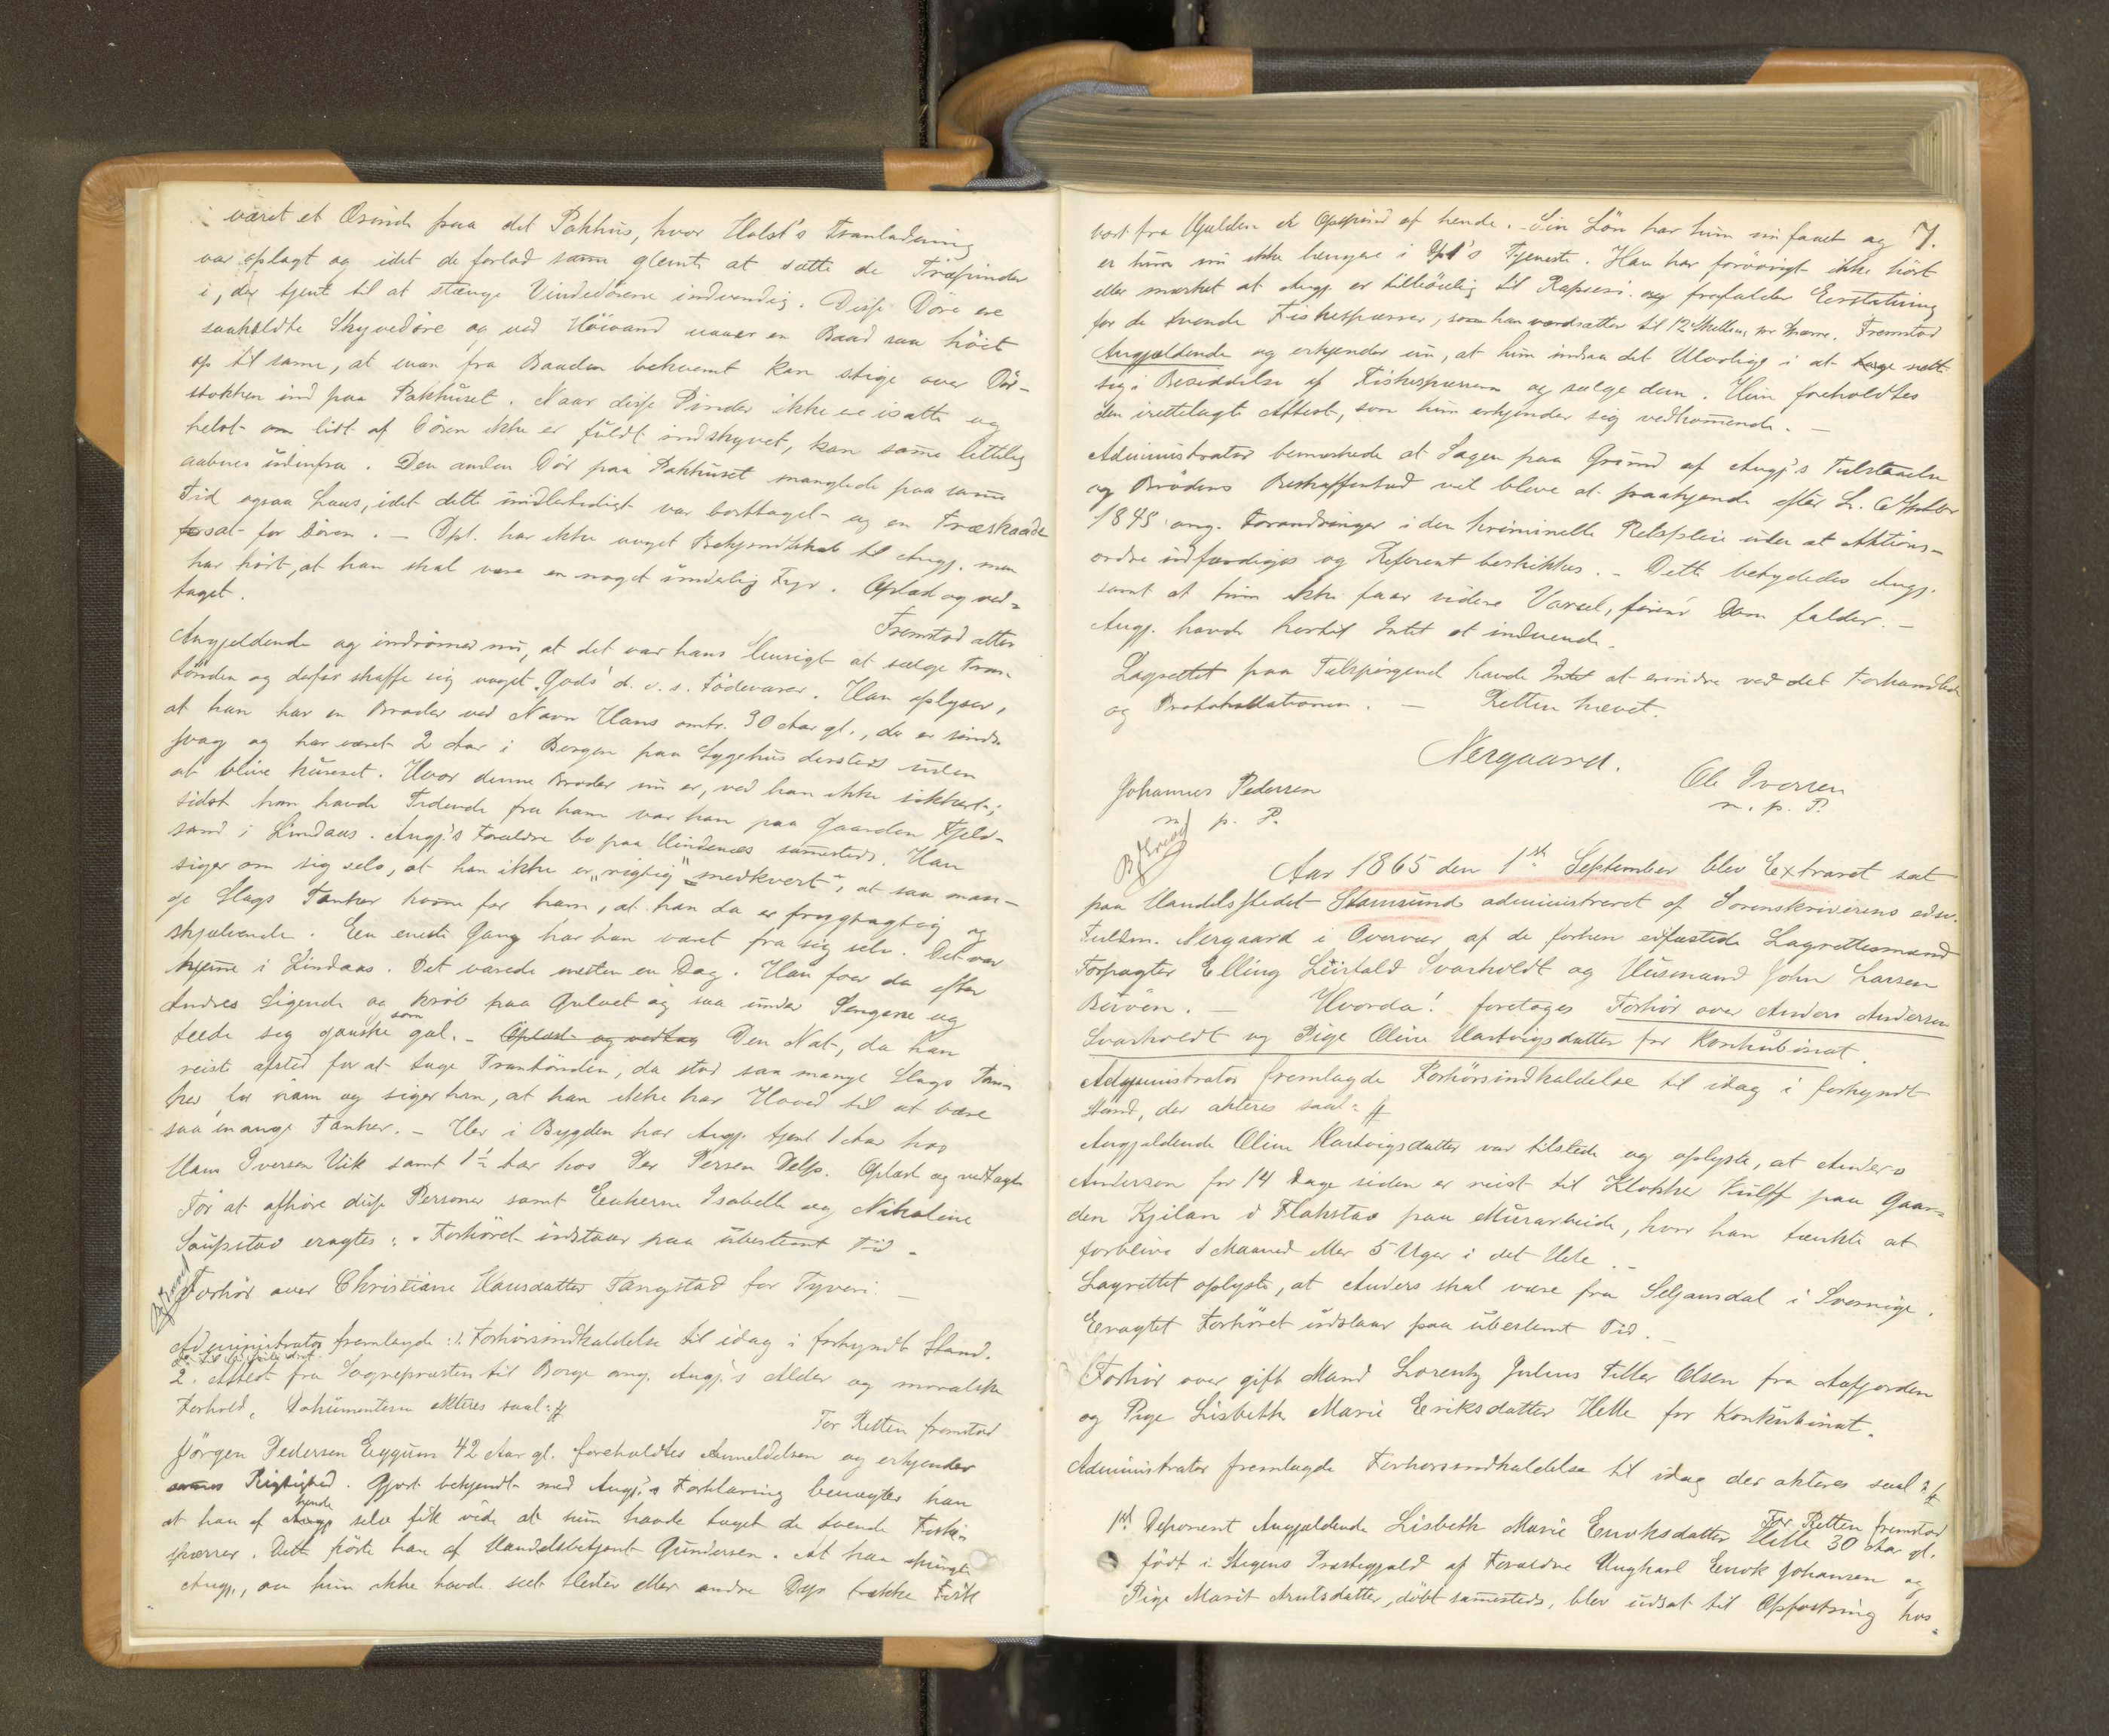 været et Ærinde paa det Pakhus, hvor Holst's Tranladning
var oplagt og idet de forlod samme glemte at sætte de Træpinder
i, der tjente til at stænge Vindedørene indvendig. Disse Døre ere
saakaldte Skyvedøre og ved Höivand naaer en Baad saa höit
op til samme, at man fra Baaden bekvemt kan stige over Dör-
stokken ind paa Pakhuset. Naar disse Pinder ikke ere isatte og
helst om lidt af Dören ikke er fuldt indskyvet, kan samme lettelig
aabnes udenfra. Den anden Dör paa Pakhuset manglede paa samme
Tid ogsaa Laas, idet dette midlertidigt var borttaget og en Træskaade
sat for Dören. – Dpt. har ikke noget Bekjendtskab til Angj. men
har hört, at han skal være en noget underlig Fyr. Oplæst og ved-
taget.
Fremstod atter
Angjeldende og indrömmed nu, at det var hans Hensigt at sælge Tran-
tönden og derfor skaffe sig noget „Gods" d. v. s. Födevarer. Han oplyser,
at han har en Broder ved Navn Hans omtr. 30 Aar gl., der er sinds-
svag og har været 2 Aar i Bergen paa Sygehus dersteds uden
at blive kureret. Hvor denne Broder nu er, ved han ikke sikkert;
sidst han havde Tidende fra ham var han paa Gaarden Fjeld-
sand i Lindaas. Angj.'s Forældre bo paa Hindenes sammesteds. Han
siger om sig selv, at han ikke er „rigtig" medkvert", at saa man-
ge Slags Tanker komme for ham, at han da er frygtagtig og
skjælvende. En eneste Gang har han været fra sig selv. Det var
hjemme i Lindaas. Det varede næsten en Dag. Han foer da efter
Andres Sigende og kröb paa Gulvet og saa under Sengene og
teede sig ganske som gal. – Oplæst og vedtag Den Nat, da han
reiste afsted for at tage Trantönden, da stod saa mange Slags Tan-
ker for ham og siger han, at han ikke har Hoved til at bære
saa mange Tanker. – Her i Bygden har Angj. tjent 1 Aar hos
Hans Iversen Vik samt 1½ Aar hos Per Persen Delp. Oplæst og vedtaget
For at afhöre disse Personer samt Enkerne Isabelle og Nikoline
Saupstad eragtes: Forhöret udstaar paa ubestemt Tid –
Forhör over Christiane Hansdatter Tangstad for Tyveri. –
Administrator fremlagde: 1. Forhörsindkaldelse til idag i forkyndt Stand.
2. Attest fra Sognepræsten til Borge ang. Angj.'s Alder og moralske
Forhold, Dokumenterne akteres saal: #
For Retten fremstod
Jörgen Pedersen Eggum 42 Aar gl. foreholdtes Anmeldelsen og erkjender
sammes Rigtighed. Gjort bekjendt med Angj.'s Forklaring benægter han
at han af hende selv fik vide at hun havde taget de tvende Fiske-
spærrer. Dette hörte han af Handelsbetjent Gundersen. At han spurgte
Angj., om hun ikke havde seet Hester eller andre Dyr trække Fisk
7.
bort fra Hjelden er Opspind af hende. Sin Lön har hun nu faaet og
er hun nu ikke længere i Dpt's Tjeneste. Han har forövrigt ikke hört
eller mærket at Angj. er tilböielig til Raperi. og frafalder Erstatning
for de tvende Fiskespærrer, som han værdsætter til 12 Skilling pr Spærre. Fremstod
Angjældende og erkjender nu, at hun indsaa det Ulovlige i at tage sætte
sig i Besiddelse af Fiskespærrene og sælge dem. Hun foreholdtes
den irettelagte Attest, som hun erkjender sig vedkommende. –
Administrator bemærkede at Sagen paa Grund af Angj.'s Tilstaaelse
og Brödens Beskaffenhed vil blive at paakjende efter L.
1848 ang. Forandringer i den kriminelle Retspleie uden at Aktions-
ordre udfærdiges og Referent beskikkes. – Dette betydedes Angj.
samt at hun ikke faar videre Varsel, förend Dom falder. –
Angj. havde hertil Intet at indvende.
Lagrettet paa Tilspörgend havde Intet at erindre ved det Forhandlede
og Protokollationen. – Retten hævet.
Nergaard.
Johannes Pedersen
m. p. P.
Ole Iversen
m. p. P.
Aar 1865 den 1ste September blev Extraret sat
paa Handelsstedet Stamsund administreret af Sorenskriverens edsv.
Fuldm. Nergaard i Overvær af de forhen edfæstede Lagrettesmænd
Forpagter Elling Leirfald Svarholdt og Husmand John Larsen
Buöen. – Hvorda! foretoges Forhör over Anders Andersen
Svarholdt og Pige Oline Hartvigsdatter for Konkubinat.
Administrator fremlagde Forhörsindkaldelse til idag i forkyndt
Stand, der akteres saal: #
Angjældende Oline Hartvigsdatter var tilstede og oplyste, at Anders
Andersen for 14 Dage siden er reist til Klokker Wulff paa Gaar-
den Kjilan i Flakstad paa Murarbeide, hvor han tænkte at
forblive 1 Maaned eller 5 Uger i det Hele. –
Lagrettet oplyste, at Anders skal være fra Seljansdal i Sverrige.
Eragtet Forhöret udstaar paa ubestemt Tid. –
Forhör over gift Mand Lorentz Julius Filler Olsen fra Aafjorden
og Pige Lisbeth Marie Eriksdatter Helle for Konkubinat.
Administrator fremlagde Forhörsindkaldelse til idag der akteres saal: #
For Retten fremstod
1st Deponent Angjældende Lisbeth Marie Enoksdatter Helle 30 Aar gl.
födt i Stegens Præstegjæld af Forældre Ungkarl Enok Johansen og
Pige Marit Arntsdatter, döbt sammesteds, blev udsat til Opfostring hos